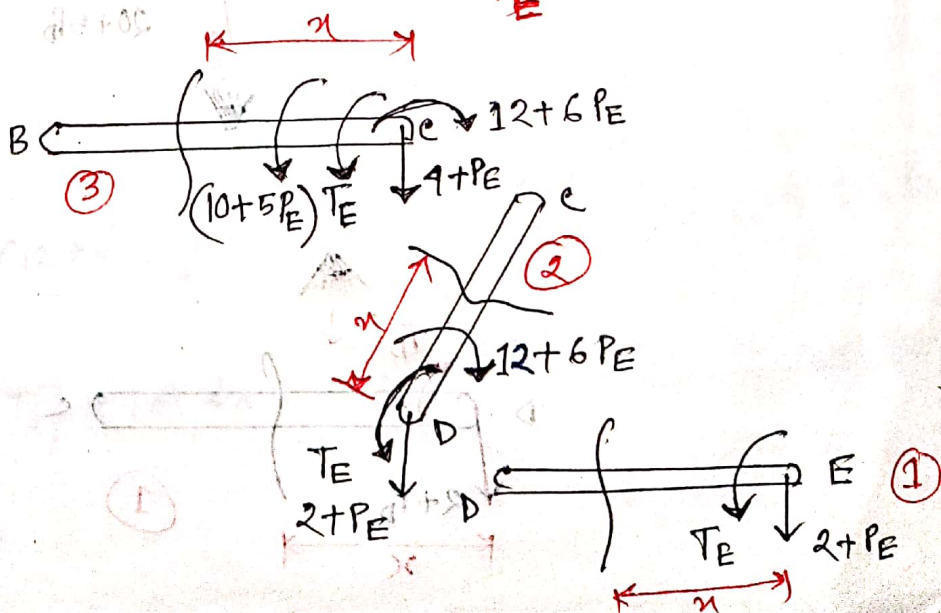 E
x
B
C
12+6P_E
③
(10+5P_E)
T_E
4+P_E
C
②
x
12+6P_E
D
T_E
2+P_E
D
E
①
T_E
2+P_E
x